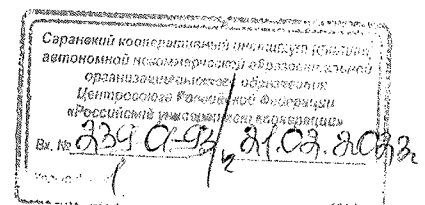 Саранский кооперативный институт (филиал)
автономной некоммерческой образовательной
организации высшего образования
Центросоюза Российской Федерации
«Российский университет кооперации»
Вх. № 239 21.02.2023г.